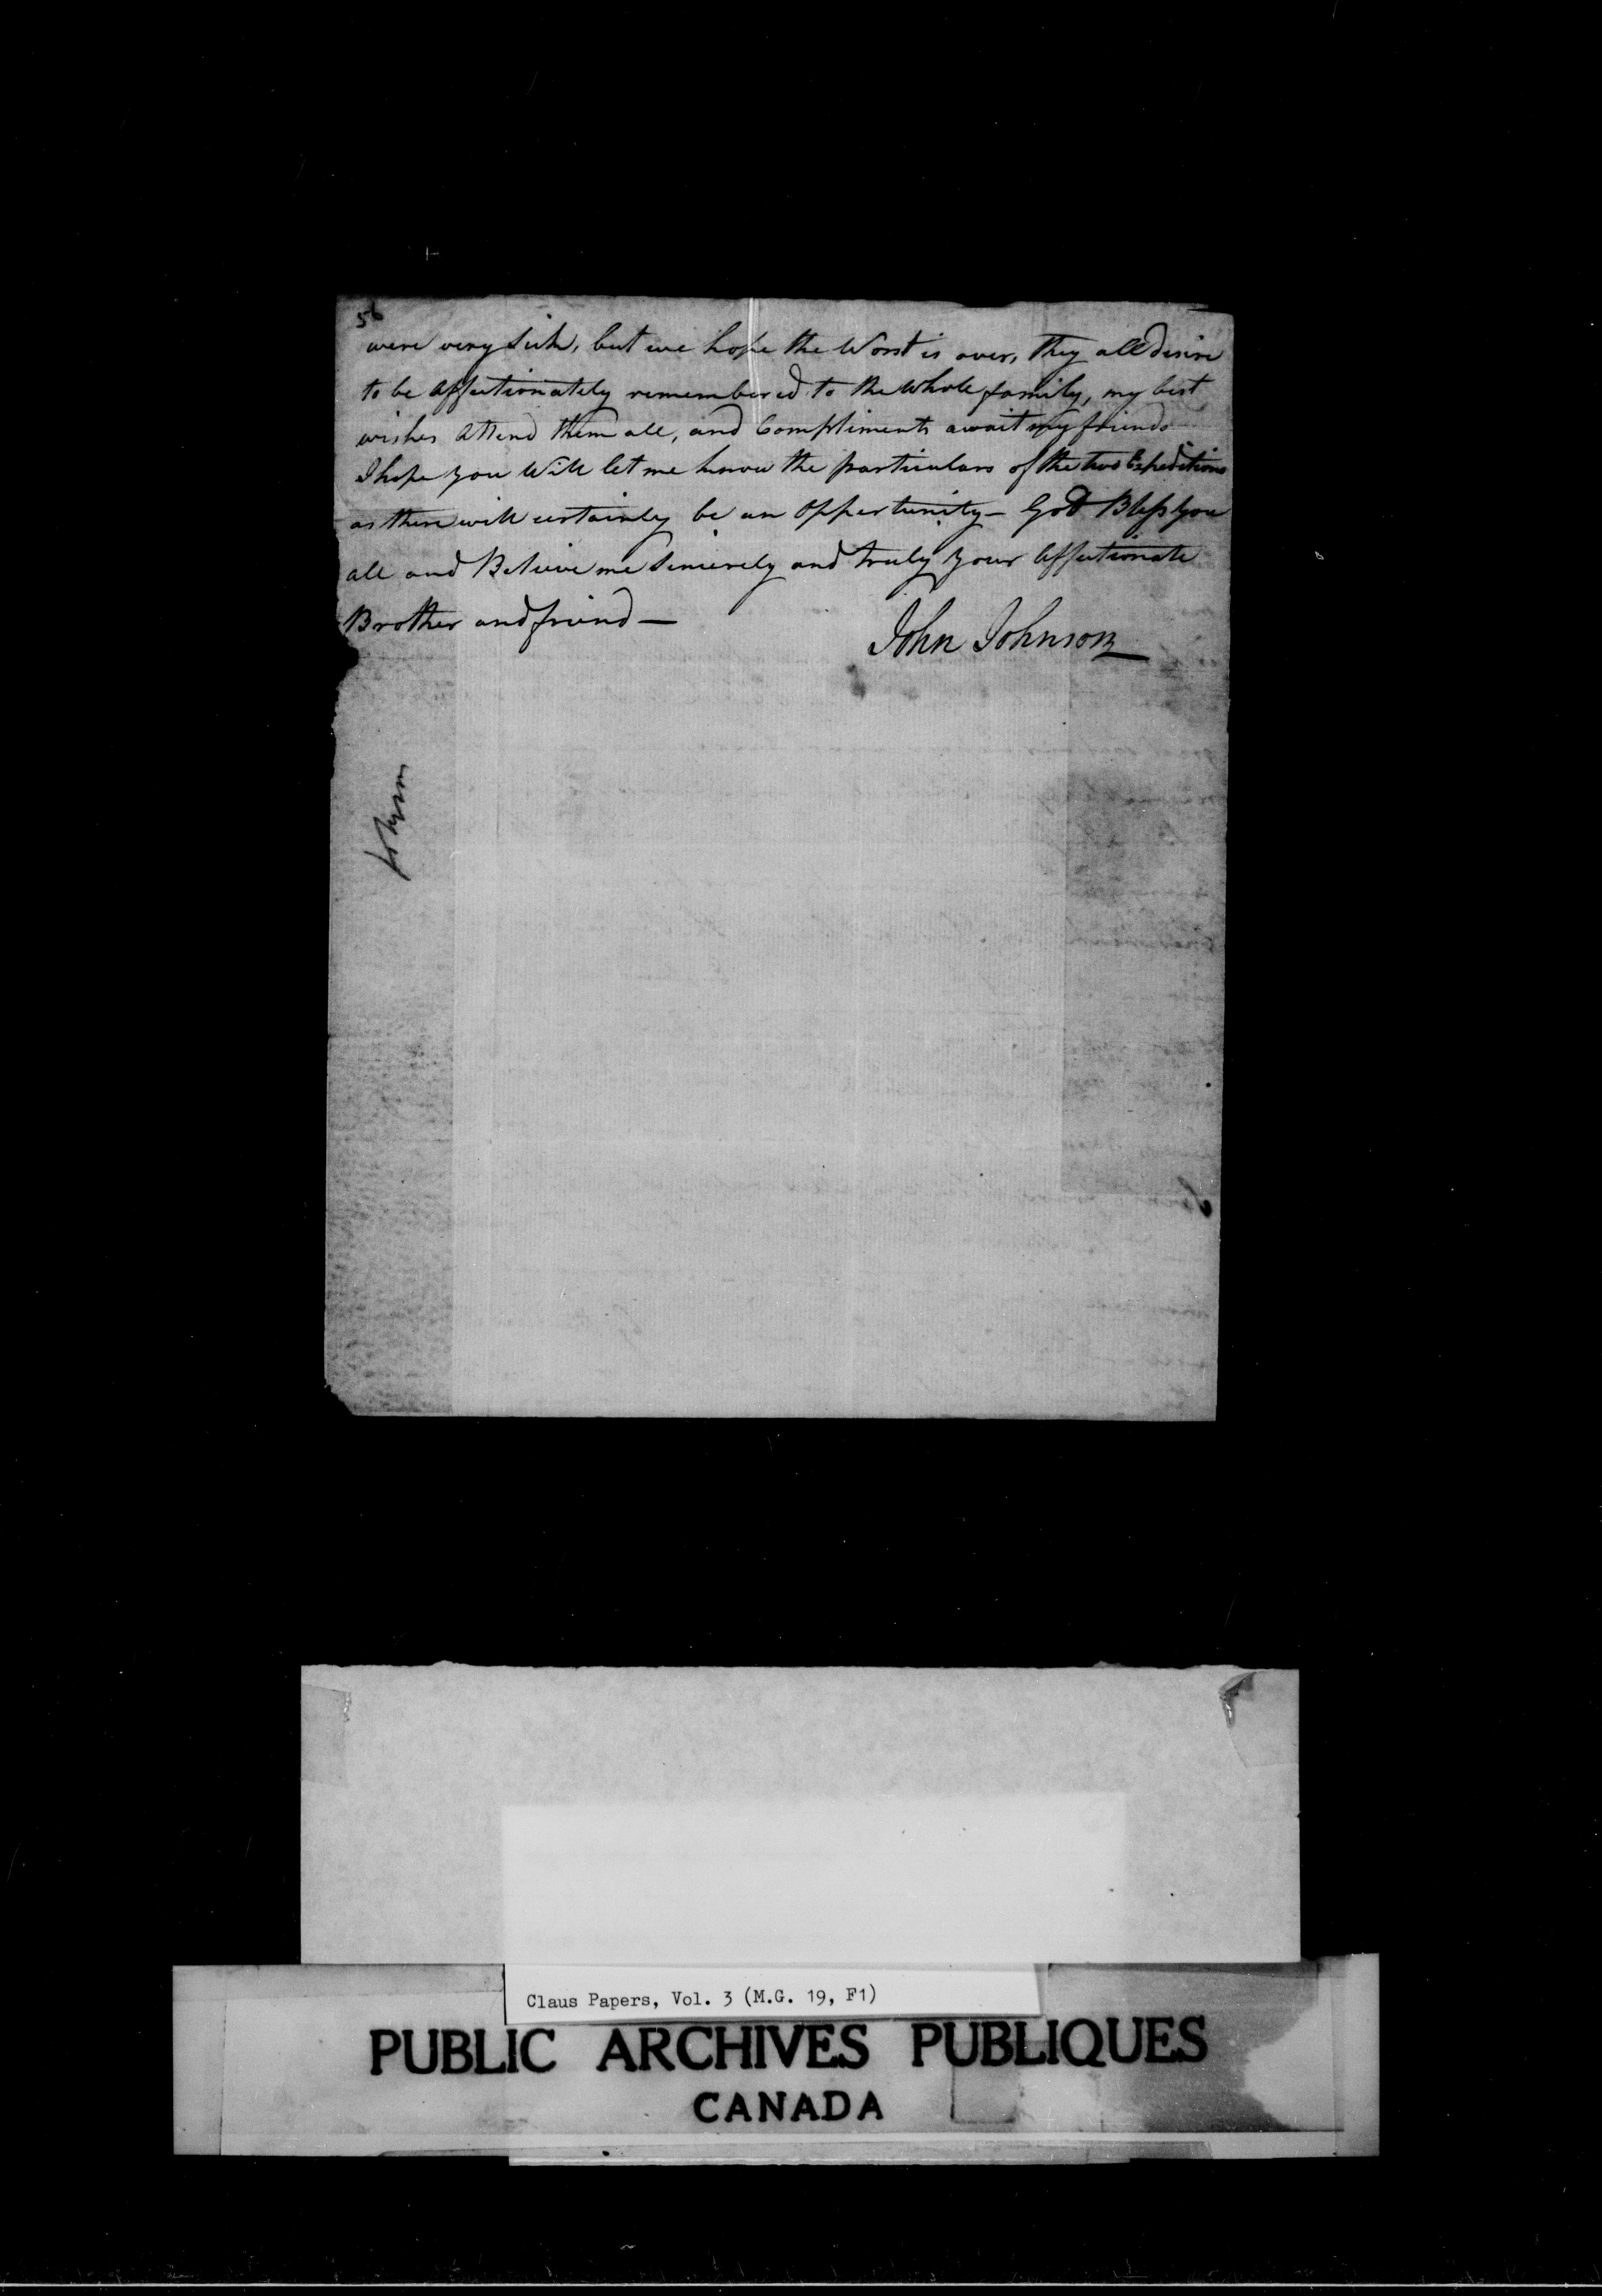 56
were very Sick, but we hope the Worst is over, they all desire
to be affectionately remembered to the whole family, my best
wishes attend them all, and Compliments await my friends
I hope you Will let me know the particulars of the two Expeditions
as there will certainly be an Opportunity — God Bless you
all and Believe me Sincerely and truly your affectionate
Brother and friend —
John Johnson
Claus Papers, Vol. 3 (M.G. 19, F1)
PUBLIC ARCHIVES PUBLIQUES
CANADA